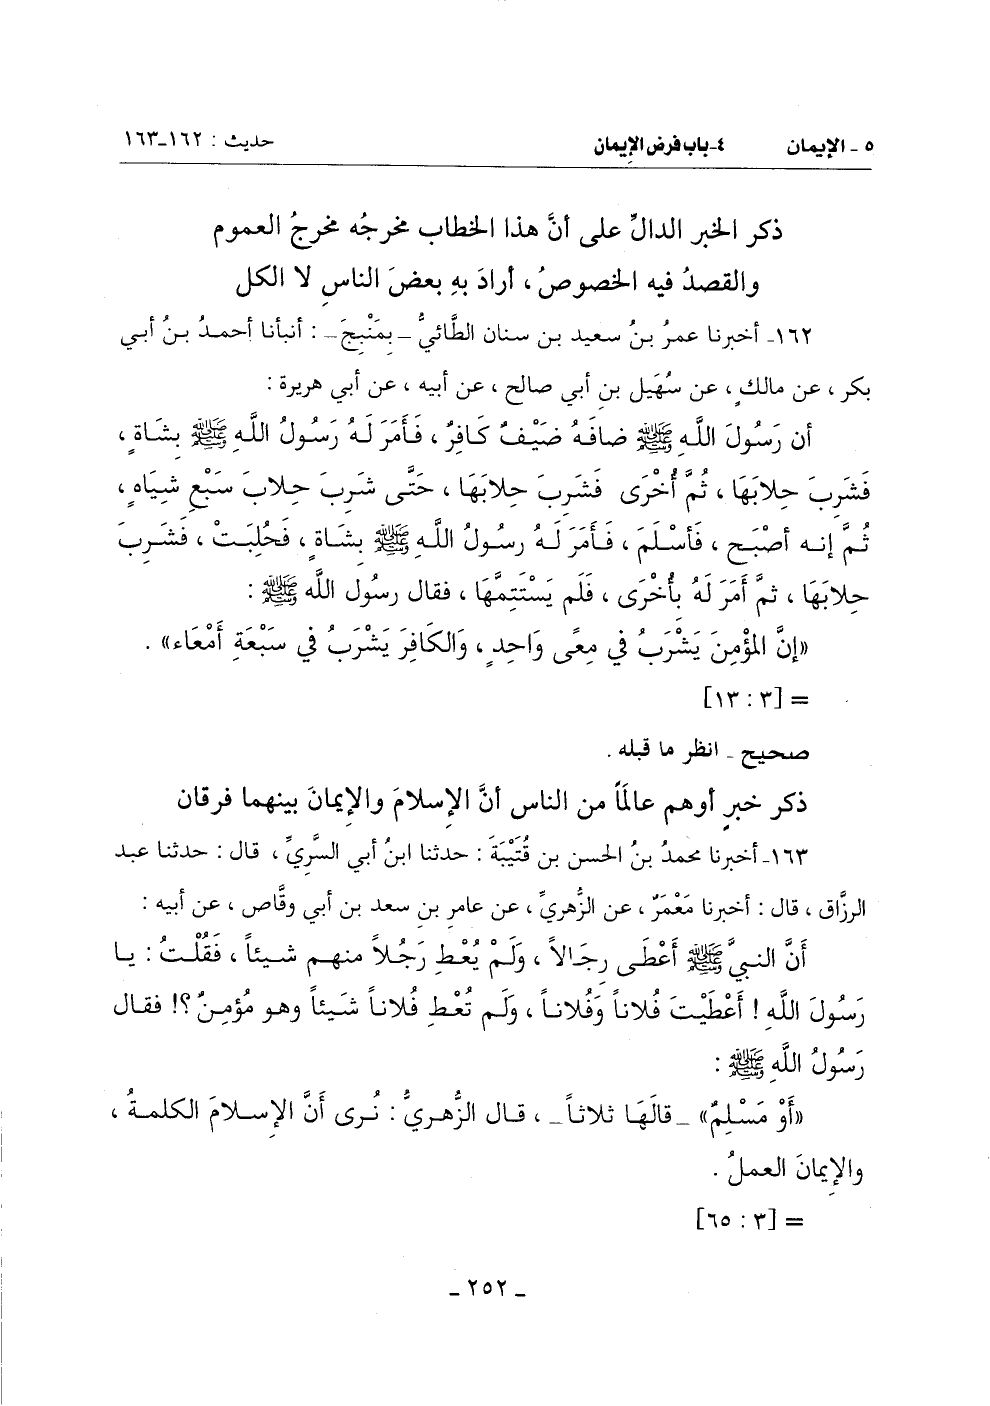 ٥ - الإيمان ٤- باب فرض الإيمان حديث : ١٦٢-١٦٣
ذكر الخبر الدالِّ على أنَّ هذا الخطاب مخرجُه مخرجُ العموم
والقصدُ فيه الخصوصُ ، أرادَ بهِ بعضَ الناسِ لا الكل
١٦٢- أخبرنا عمرُ بنُ سعيد بن سنان الطَّائيُّ - بمَنْبِجَ - : أنبأنا أحمدُ بنُ أبي
بكر ، عن مالكٍ ، عن سُهَيل بنِ أبي صالح ، عن أبيه ، عن أبي هريرة :
أن رَسُولَ اللَّهِ ﷺ ضافَهُ ضَيْفٌ كَافِرٌ ، فَأَمَرَ لَهُ رَسُولُ اللَّهِ ﷺ بشَاةٍ ،
فَشَرِبَ حِلابَهَا ، ثُمَّ أُخْرَى فَشَرِبَ حِلابَهَا ، حَتَّى شَرِبَ حِلابَ سَبْعِ شِيَاهٍ ،
ثُمَّ إنه أصْبَح ، فَأسْلَمَ ، فَأَمَرَ لَهُ رسُولُ اللَّهِ ﷺ بشَاةٍ ، فَحُلِبَتْ ، فَشَرِبَ
حِلابَهَا ، ثمَّ أمَرَ لَهُ بِأُخْرَى ، فَلَم يَسْتَتِمَّهَا ، فقال رسُول اللَّه ﷺ :
«إنَّ المُؤْمِنَ يَشْرَبُ في مِعًى وَاحِدٍ ، وَالكَافِرَ يَشْرَبُ في سَبْعَةِ أَمْعَاء» .
= [٣ : ١٣]
صحيح - انظر ما قبله .
ذكر خبرٍ أوهم عالمَاً من الناس أنَّ الإسلامَ والإيمانَ بينهما فرقان
١٦٣- أخبرنا محمدُ بنُ الحسن بن قُتَيْبَةَ : حدثنا ابنُ أبي السَّريِّ ، قال : حدثنا عبد
الرزَّاق ، قال : أخبرنا مَعْمَرٌ ، عن الزُّهريِّ ، عن عامر بن سعد بن أبي وقَّاص ، عن أبيه :
أَنَّ النبيَّ ﷺ أَعْطَى رِجَالاً ، ولَمْ يُعْطِ رَجُلاً منهم شيئاً ، فَقُلْتُ : يا
رَسُولَ اللَّهِ ! أَعْطَيْتَ فُلاناً وَفُلاناً ، ولَم تُعْطِ فُلاناً شَيئاً وهو مُؤمِنٌ ؟! فقال
رَسُولُ اللَّهِ ﷺ :
«أَوْ مَسْلِمٌ» - قالَهَا ثلاثاً - ، قال الزُّهريُّ : نُرى أَنَّ الإسلامَ الكلمةُ ،
والإيمانَ العملُ .
= [٣ : ٦٥]
- ٢٥٢ -